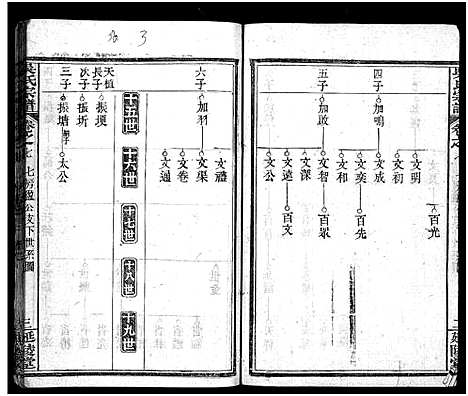 吴氏宗譜
卷之七
七房盈公支下世系圖
三
延陵堂
四子
加鳴
文明
百光
文初
文成
文奕
百先
文和
五子
加啟
文智
百眾
文深
文遠
百文
六子
加羽
文禮
文渠
文卷
文通
十五世
十六世
十七世
十八世
十九世
天植
長子
振璞
次子
振圻
三子
振塘
太公